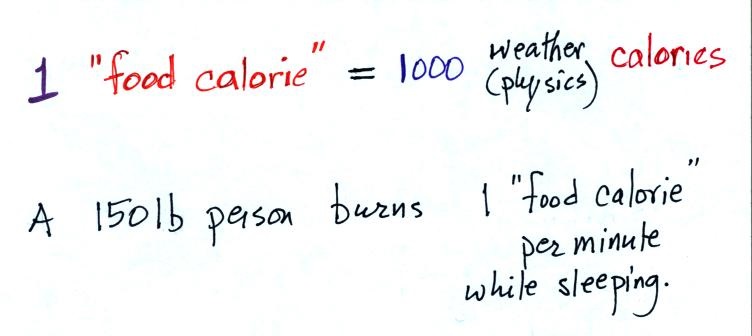 1 "food calorie" = 1000 weather (physics) calories
A 150lb person burns 1 "food calorie"
per minute
while sleeping.